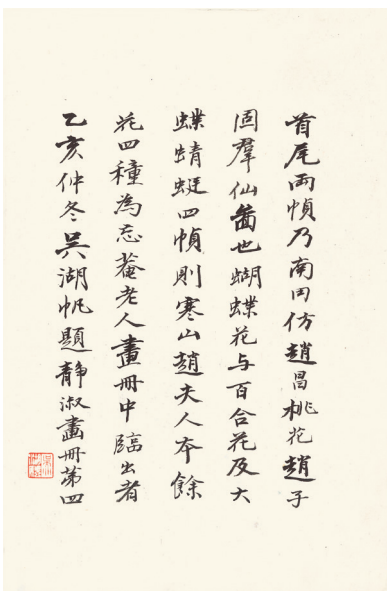 首尾兩幀乃南田仿趙昌桃花趙子
固羣仙啚也蝴蝶花与百合花及大
蝶蜻蜓四幀則寒山趙夫人本餘
花四種為忘菴老人畫冊中臨出者
乙亥仲冬吳湖帆題靜淑畫冊第四